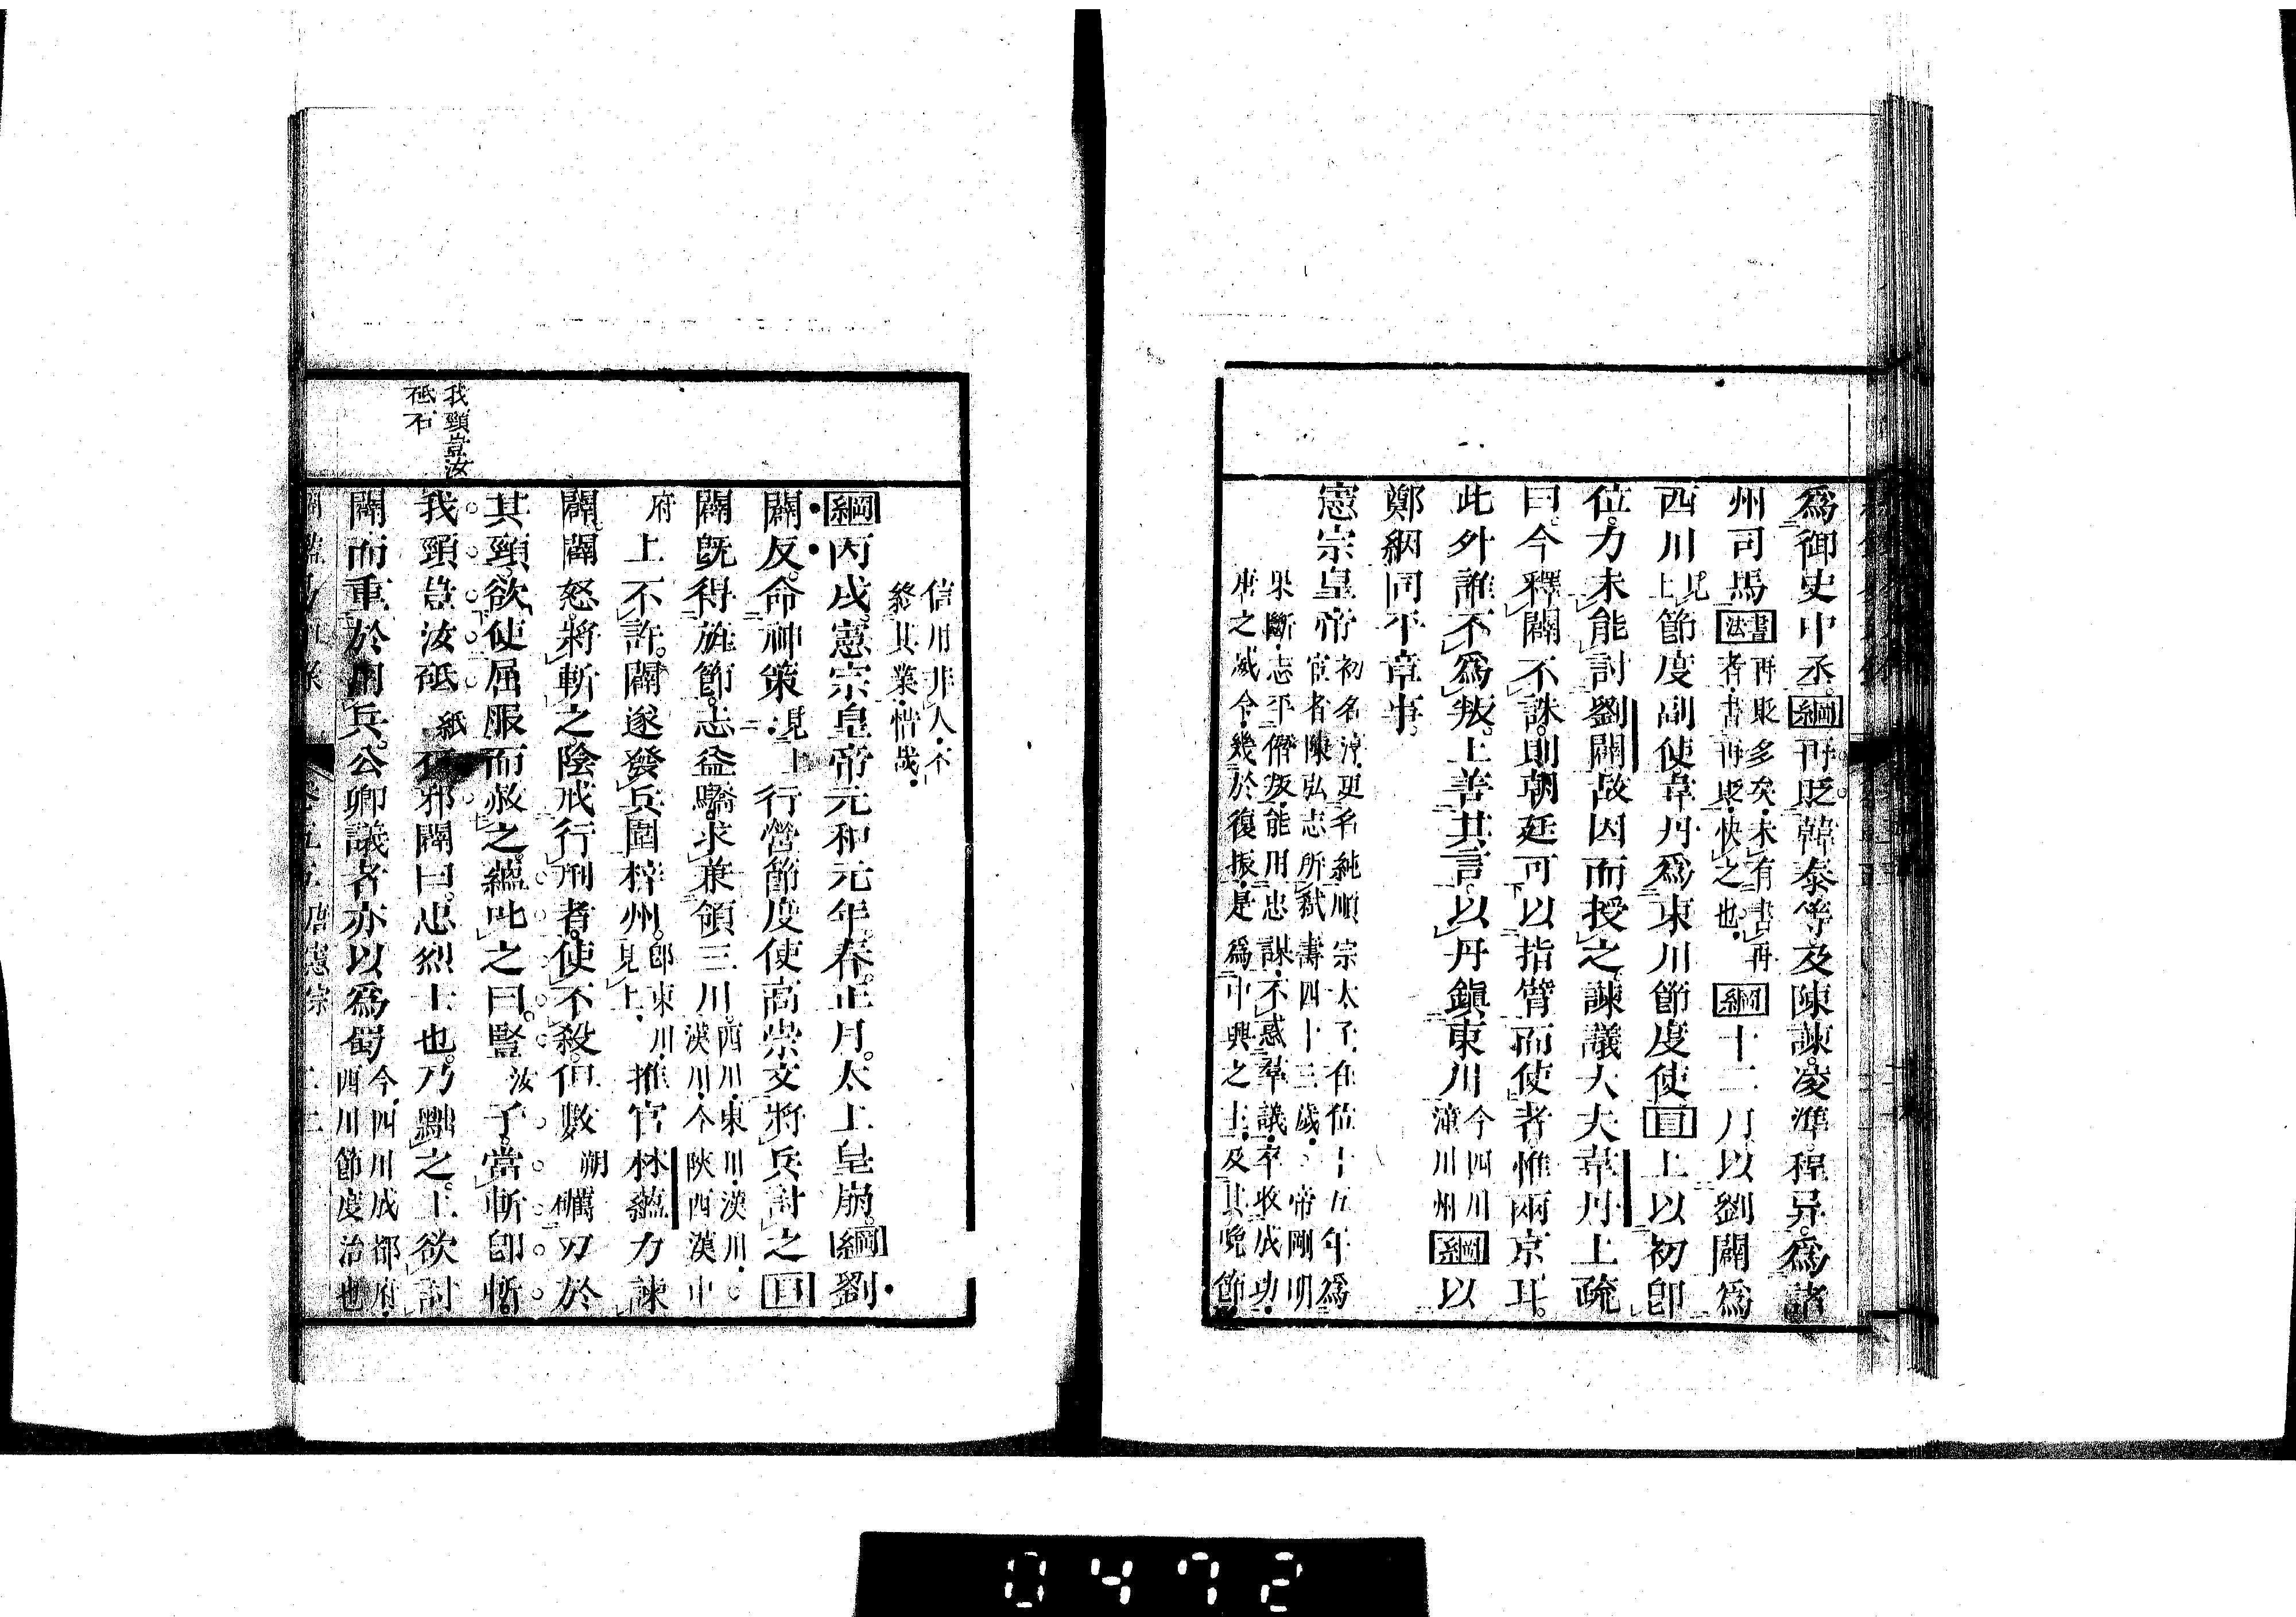 爲御史中丞。綱再貶韓泰等及陳諫。凌準。程异。爲諸
州司馬書法再貶多矣。未有書再
者。書再貶。快之也。綱十二月以劉闢爲
西川見上節度副使韋丹爲東川節度使目上以初卽
位。力未能討劉闢故因而授之諫議大夫韋丹上疏
曰。今釋闢不誅。則朝廷可以指臂而使者。惟兩京耳。
此外誰不爲叛。上善其言。以丹鎮東川今四川
潼川州綱以
鄭絪同平章事。
憲宗皇帝初名淳。更名純順宗太子。在位十五年爲
宦者陳弘志所弑壽四十三歲。帝剛明
果斷。志平僭叛。能用忠謀。不惑羣議。卒收成功。
唐之威令。幾於復振。是爲中興之主。及其晩節
信用非人。不
終其業。惜哉。
綱丙戌。憲宗皇帝元和元年。春。正月。太上皇崩。綱劉
闢反。命神策見上行營節度使高崇文將兵討之目
闢旣得旌節。志益驕。求兼領三川。西川。東川。漢川。
漢川。今陝西漢中
府上不許。闢遂發兵圍梓州。卽東川。
見上。推官林蘊力諫
闢。闢怒。將斬之陰戒行刑者。使不殺。但數朔礪刃於
其頸。欲使屈服而赦之。蘊叱之曰。豎汝子。當斬卽斬。
我頸豈汝砥紙石邪闢曰。忠烈士也。乃黜之。上欲討
闢而重於用兵。公卿議者亦以爲蜀今四川成都府。
西川節度治也
我頸豈汝
砥石
唐憲宗